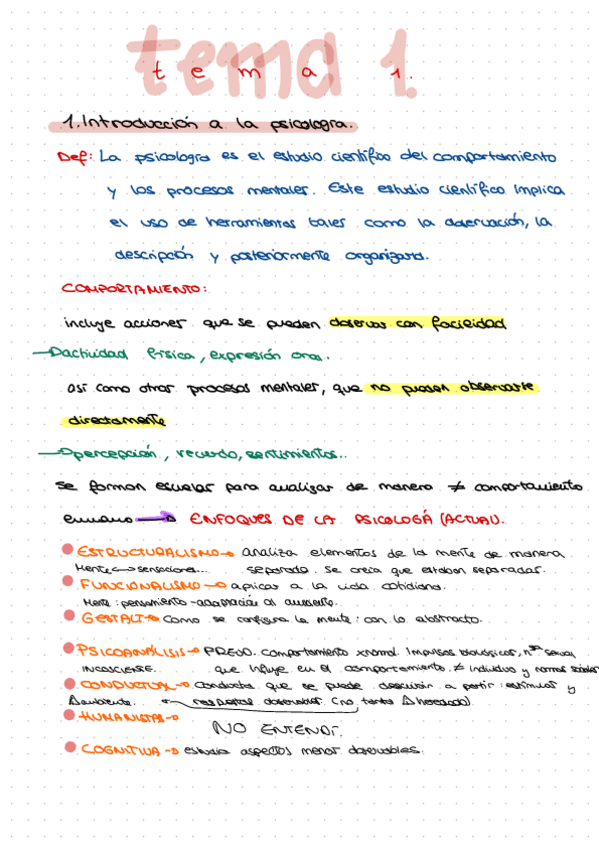 tema 1.
t e m a 1.
1. Introducción a la psicología.
Def: La psicología es el estudio científico del comportamiento
y los procesos mentales. Este estudio científico implica
el uso de herramientas tales como la observación, la
descripción y posteriormente organizarla.
COMPORTAMIENTO:
incluye acciones que se pueden observar con facilidad
→ actividad física, expresión oral.
así como otros procesos mentales, que no pueden observarse
directamente
→ percepción, recuerdo, sentimientos..
se forman escuelas para analizar de manera ≠ comportamiento
humano → ENFOQUES DE LA PSICOLOGÍA (ACTUAL).
ESTRUCTURALISMO → analiza elementos de la mente de manera
Mente → sensaciones... separada. Se creía que estaban separadas.
FUNCIONALISMO → aplicar a la vida cotidiana.
Mente: pensamiento - adaptación al ambiente.
GESTALT → Como se configura la mente: con lo abstracto.
PSICOANÁLISIS → PREUD. comportamiento xnormal. Impulsos biológicos, sexual
INCONSCIENTE. que influye en el comportamiento. ≠ individuo y normas sociales
CONDUCTUAL → conducta que se puede describir a partir: estímulos y
ambiente. respuestas observables (no tanto heredado).
HUMANISTAS →
NO ENTENDÍ.
COGNITIVA → estudia aspectos menos observables.